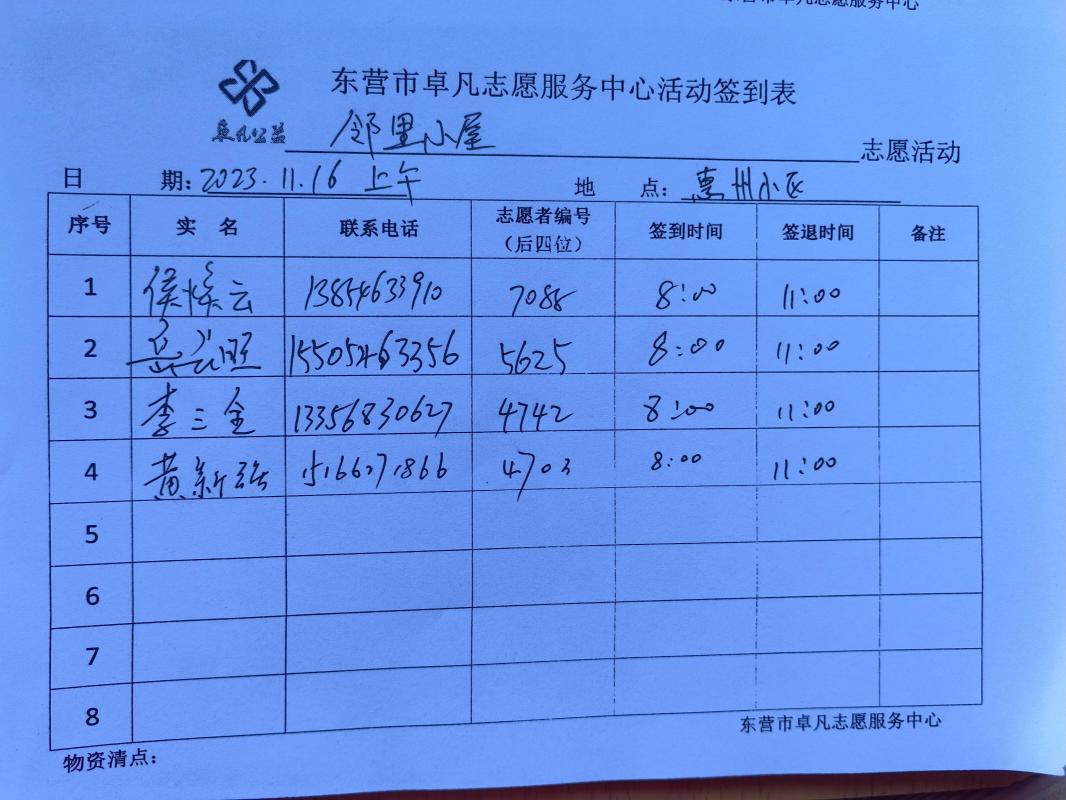 东营市卓凡志愿服务中心
东营市卓凡志愿服务中心活动签到表
卓凡公益 邻里小屋 志愿活动
日 期: 2023.11.16 上午 地 点: 惠州小区
序号 实 名 联系电话 志愿者编号 (后四位) 签到时间 签退时间 备注
1 侯焕云 13854633910 7088 8:00 11:00
2 15505463356 5625 8:00 11:00
3 李三全 13356830627 4742 8:00 11:00
4 黄新 15166271866 4703 8:00 11:00
5
6
7
8
东营市卓凡志愿服务中心
物资清点: